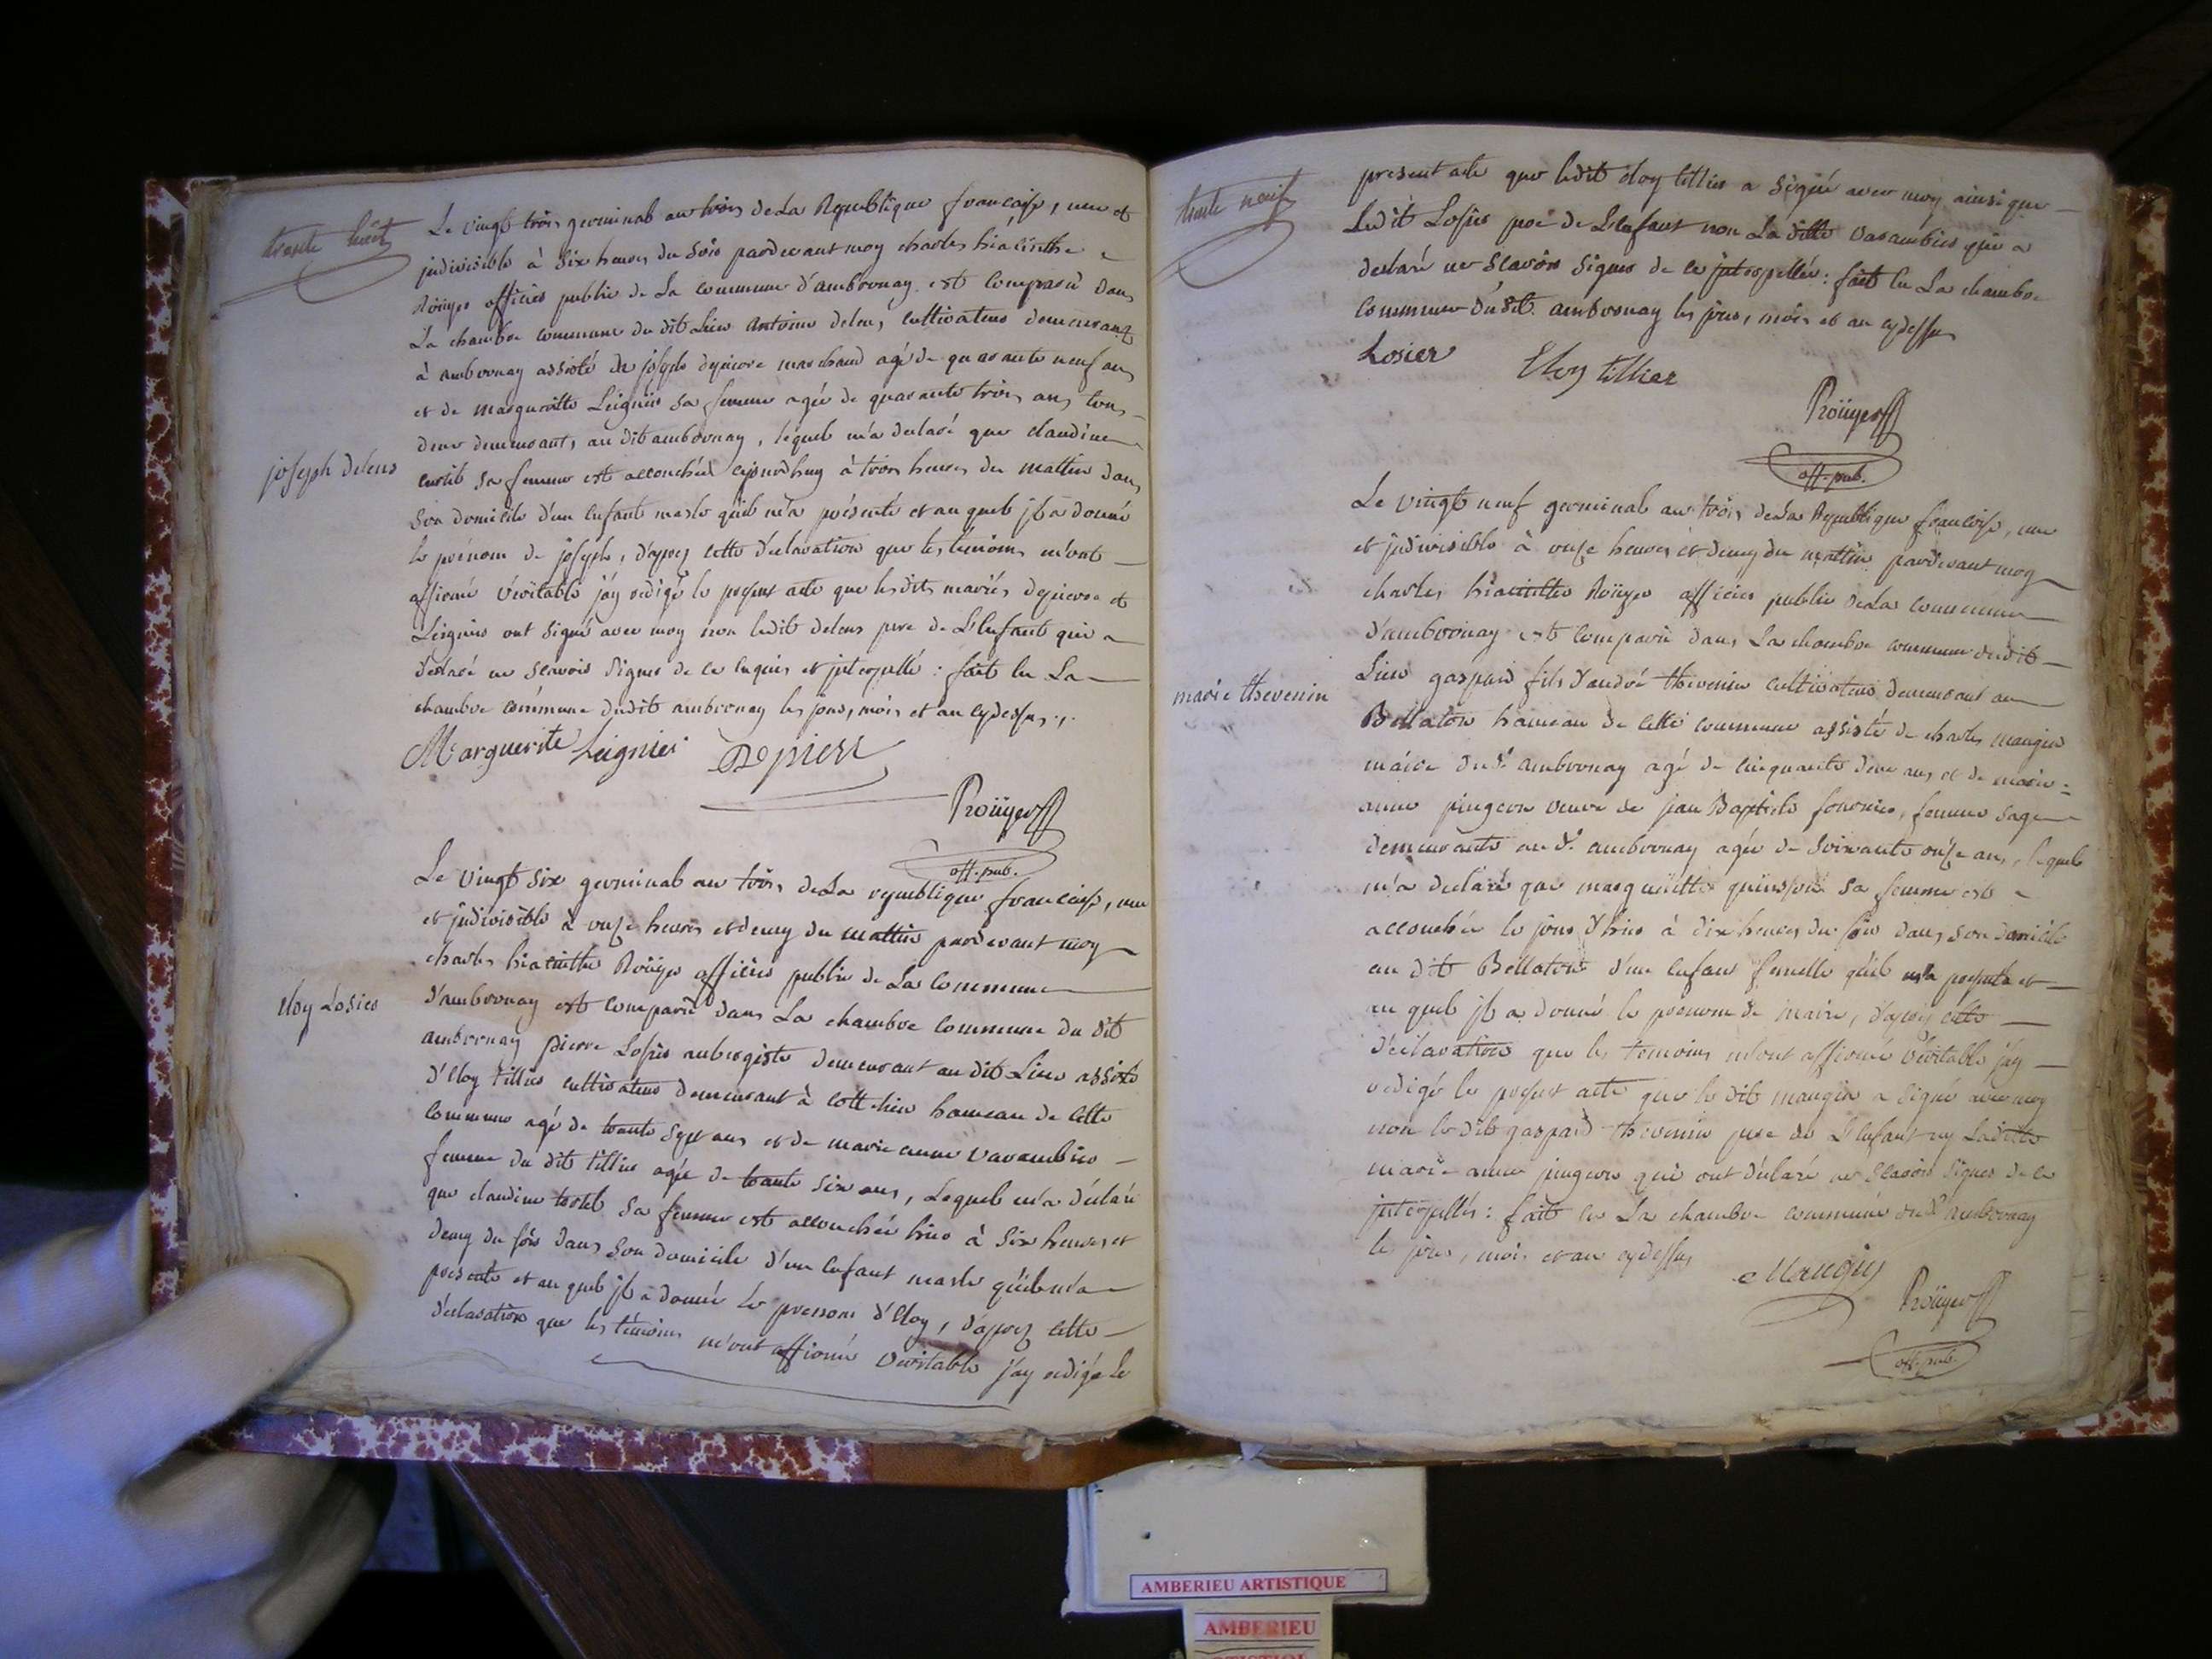 trente huit
Le vingt trois germinal an trois de La Republique francaise, une et
indivisible à six heures du soir pardevant moy charles hiacinthe
Roüyer officier public de La commune d'ambronay est comparu dans
La chambre commune du dit Lieu Antoine delens cultivateur demeurant
à ambronay assisté de joseph depierre marchand agé de quarante neuf ans
et de margueritte Leignier sa femme agée de quarante trois ans tous
deux demeurants au dit ambronay, lequel m'a declaré que claudine
joseph delens
sa femme est accouchée ajourdhuy à trois heures du mattin dans
son domicile d'un enfant masle qu'il m'a présenté et au quel jl a donné
le prénom de joseph, d'apres cette déclaration que les temoins m'ont
affirmé véritable j'ay redigé le present acte que lesdits mariés depierre et
Leignier ont signé avec moy non ledit delens pere de L'enfant qui a
déclaré ne scavoir signer de ce enquis et jnterpellé : fait en La
chambre commune dudit ambronay les jour, mois et an cydessus ./.
Marguerite Leignier Depierre
Roüyer
off. pub.
Le vingt six germinal an trois de La republique francaise, une
et jndivisible à onze heures et demy du mattin pardevant moy
charles hiacinthe Roüyer officier public de La commune
eloy Losier
d'ambronay est comparu dans La chambre commune du dit
ambronay pierre Losier aubergiste demeurant au dit Lieu assisté
d'Eloy tillier cultivateur demeurant à hameau de cette
commune agé de trente sept ans et de marie anne varambier
femme du dit tillier agée de trente six ans, Lequel m'a déclaré
que claudine sa femme est accouchée hier à six heures et
demy du soir dans son domicile d'un enfant masle qu'il m'a
présenté et au quel jl a donné le prenom d'Eloy, d'apres cette
déclaration que les témoins m'ont affirmé véritable j'ay redigé le
trente neuf
present acte que ledit eloy tillier a signé avec moy ainsi que
Ledit Losier pere de L'enfant non La ditte varambier qui a
declaré ne scavoir signer de ce jnterpellée : fait en La chambre
commune dudit ambronay les jour, mois et an cydessus
Losier Eloy tillier
Roüyer
off. pub.
Le vingt neuf germinal an trois de La Republique francoise, une
et jndivisible à onze heures et demy du mattin pardevant moy
charles hiacinthe Roüyer officier public de La commune
d'ambronay est comparu dans La chambre commune dudit
Lieu gaspard fils d'andré thevenin cultivateur demeurant au
marie thevenin
Bellaton hameau de cette commune assisté de charles mangin
maire dudt ambronay agé de cinquante deux ans et de marie
anne pingeon veuve de jean Baptiste fornier, femme sage
demeurante au dt. ambronay agée de soixante onze ans, lequel
m'a declaré que margueritte sa femme est
accouchée le jour d'hier à dix heures du soir dans son domicile
au dit Bellaton d'un enfant femelle qu'il m'a presenté et
au quel jl a donné le prenom de marie, d'apres cette
déclaration que les temoins m'ont affirmé véritable j'ay
redigé le present acte que le dit mangin a signé avec moy
non le dit gaspard thevenin pere de L'enfant ny Laditte
marie anne pingeon qui ont declaré ne scavoir signer de ce
jnterpellés : fait en La chambre commune dudt ambronay
les jour, mois et an cydessus
Mangin
Roüyer
off. pub.
AMBERIEU ARTISTIQUE
AMBERIEU